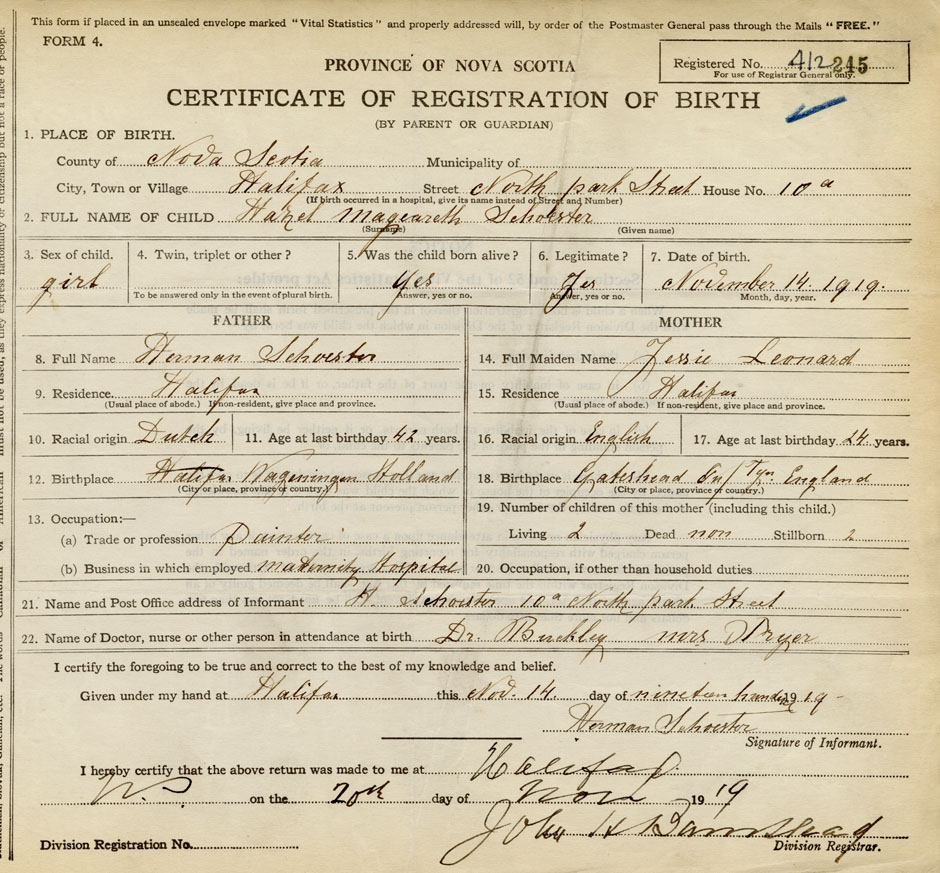 This form if placed in an unsealed envelope marked "Vital Statistics" and properly addressed will, by order of the Postmaster General pass through the Mails "FREE."
FORM 4.
Registered No. 412 245
For use of Registrar General only.
PROVINCE OF NOVA SCOTIA
CERTIFICATE OF REGISTRATION OF BIRTH
(BY PARENT OR GUARDIAN)
1. PLACE OF BIRTH.
County of Nova Scotia Municipality of
City, Town or Village Halifax Street North park Street House No. 10 a
(If birth occurred in a hospital, give its name instead of Street and Number)
2. FULL NAME OF CHILD Hazel Mageareth Schoester
(Surname) (Given name)
3. Sex of child. 4. Twin, triplet or other? 5. Was the child born alive? 6. Legitimate? 7. Date of birth.
girl Yes Yes November 14. 1919.
To be answered only in the event of plural birth. Answer, yes or no. Answer, yes or no. Month, day, year.
FATHER
8. Full Name Herman Schoester
9. Residence. Halifax
(Usual place of abode.) If non-resident, give place and province.
10. Racial origin Dutch 11. Age at last birthday 42 years.
12. Birthplace Halifax Wageningen Holland
(City or place, province or country.)
13. Occupation:—
(a) Trade or profession Painter
(b) Business in which employed maternity Hospital
MOTHER
14. Full Maiden Name Jessie Leonard
15. Residence Halifax
(Usual place of abode.) If non-resident, give place and province.
16. Racial origin English 17. Age at last birthday 24 years.
18. Birthplace Gateshead On/Tyn England
(City or place, province or country.)
19. Number of children of this mother (including this child.)
Living 2 Dead non Stillborn 2
20. Occupation, if other than household duties
21. Name and Post Office address of Informant H. Schoester 10 a North park Street
22. Name of Doctor, nurse or other person in attendance at birth Dr. Buckley mrs Dryer
I certify the foregoing to be true and correct to the best of my knowledge and belief.
Given under my hand at Halifax this Nov. 14. day of nineteen hundred 1919
Herman Schoester
Signature of Informant.
I hereby certify that the above return was made to me at Halifax
on the 20th day of Nov 1919
John H Barnstead
Division Registration No. Division Registrar.